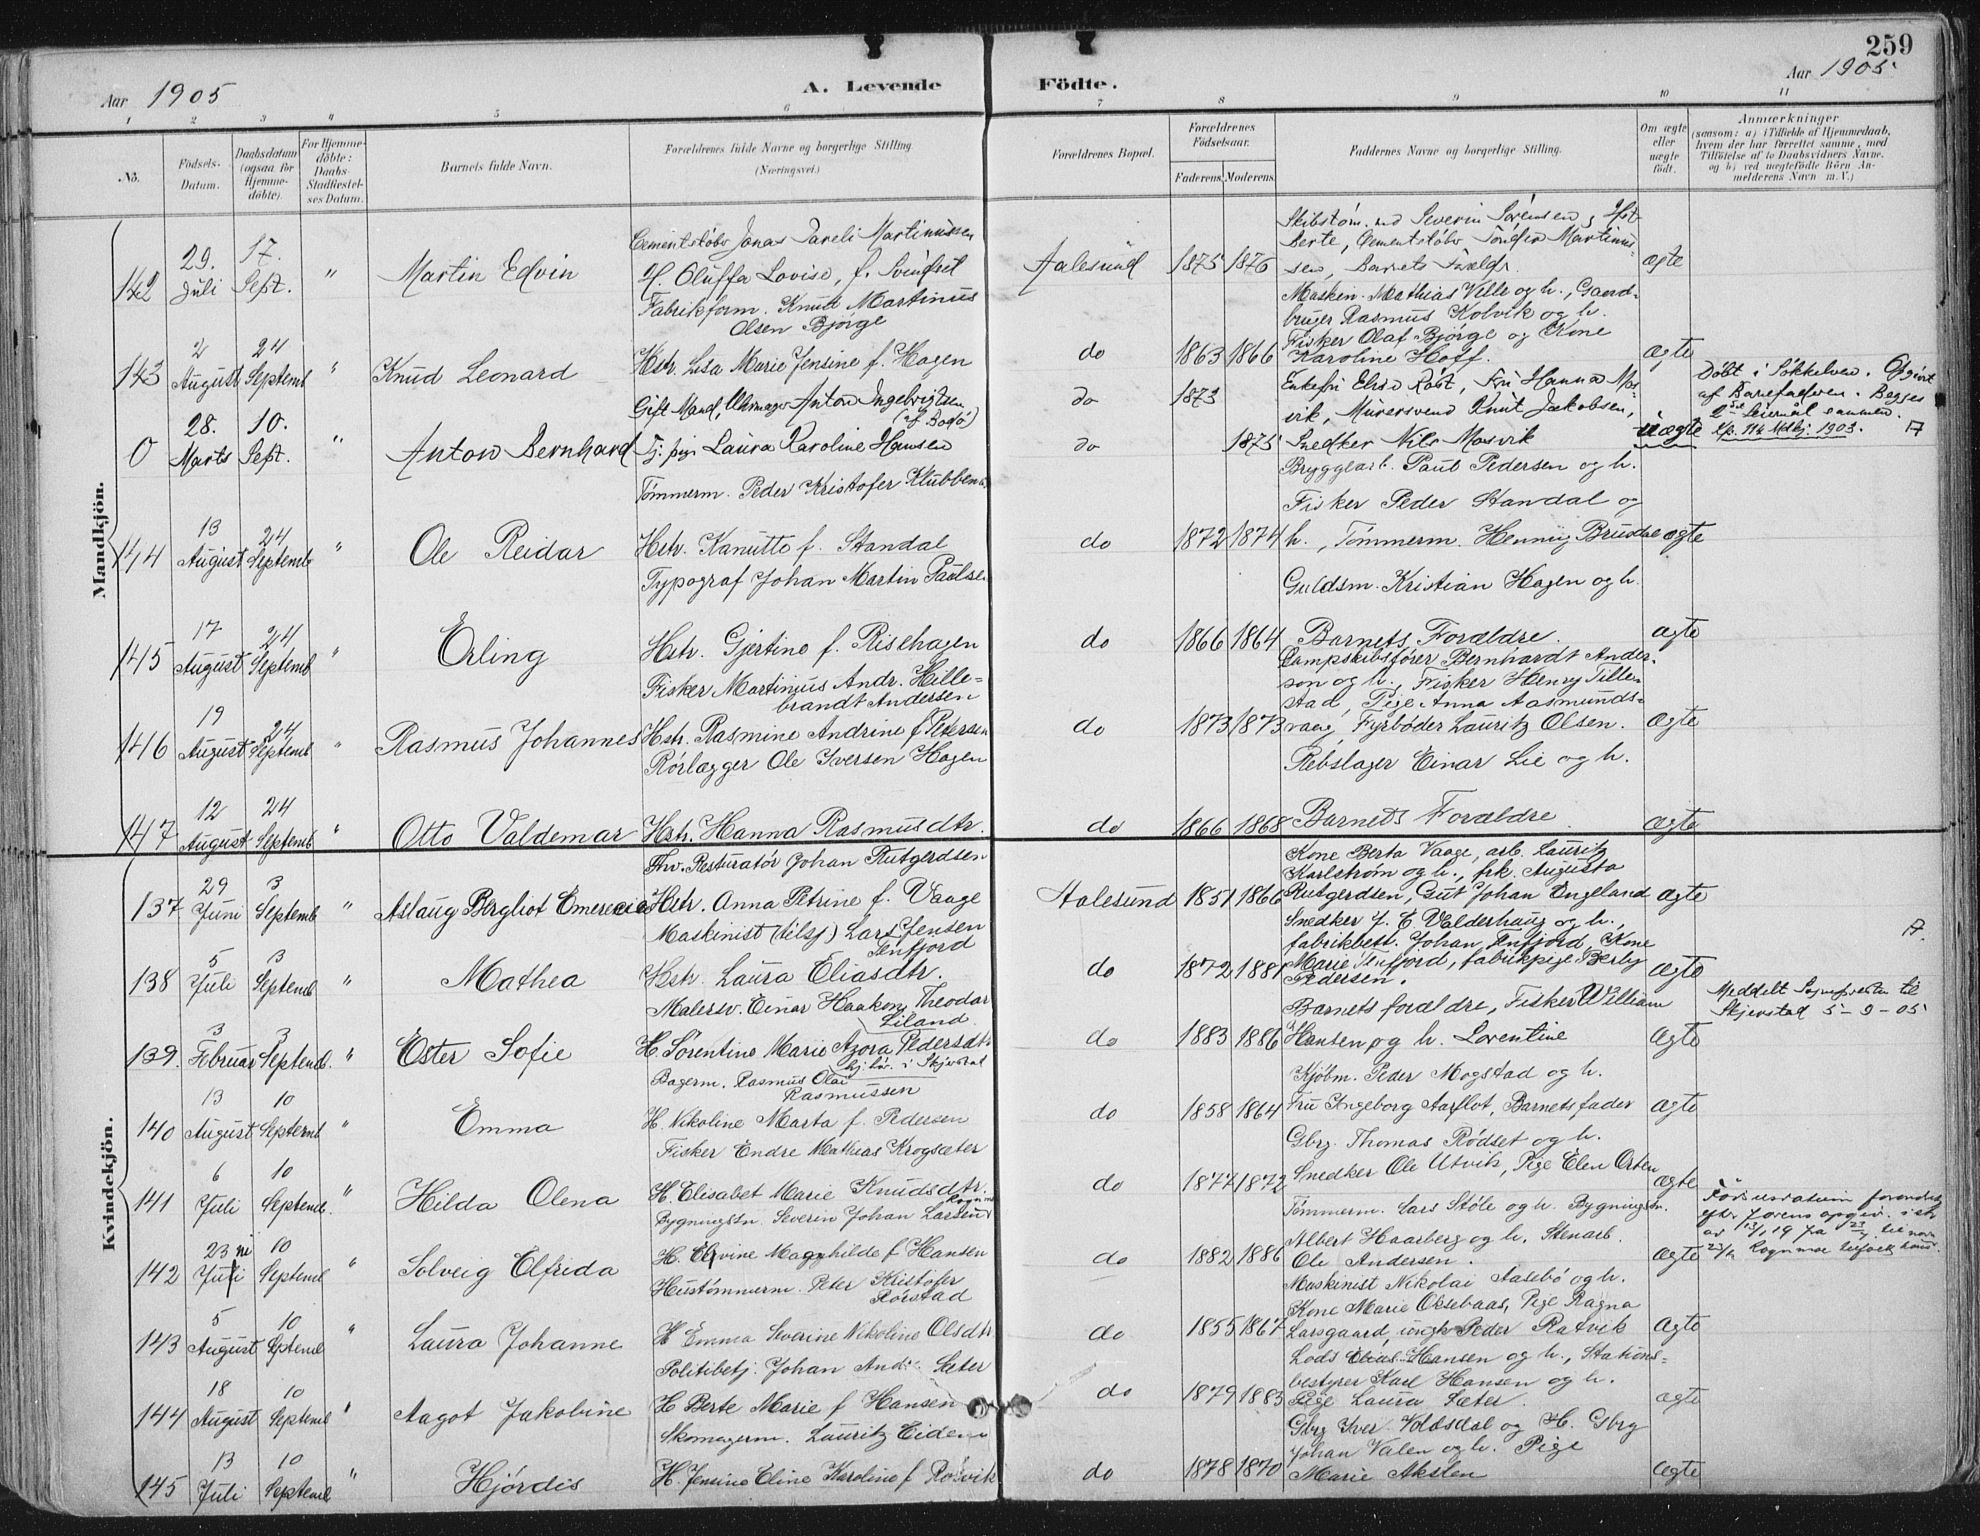 259
Aar 1905
A. Levende Födte.
Aar 1905
1 2 3 4 5 6 7 8 9 10 11
No.
Födsels-Datum.
Daabsdatum (ogsaa for Hjemmedöbte).
For Hjemmedöbte: Daabs-Stadfæstelses Datum.
Barnets fulde Navn.
Forældrenes fulde Navne og borgerlige Stilling (Næringsvei.)
Forældrenes Bopæl.
Forældrenes Födselsaar.
Faderens. Moderens.
Faddernes Navne og borgerlige Stilling.
Om ægte eller uægte födt.
Anmærkninger
(saasom: a) i Tilfælde af Hjemmedaab, hvem der har forrettet samme, med Tilföielse af to Daabsvidners Navne, og b) ved uægtefödte Börn Anmelderens Navn m. V.)
Mandkjön.
142 29. Juli 17. Sept. " Martin Edvin
Cementstöber Jonas Martinussen
H. Oluffa Lovise, f. Svindset
Aalesund 1875 1876
Severin Sörensen, Hst
Berte, Cementstöber Martinus-
sen, Barnets Foreldr. ægte
Maskin. Mathias Ville og h., Gaard-
bruger Rasmus Kolvik og h.
143 2 August 24 Septemb " Knud Leonard
Fabrikform. Knut Martinus
Olsen Bjørge
Hstr. Lisa Marie Jensine f. Hagen
do 1863 1866
Fisker Olaf Bjørge og Kone
Karoline Hoff. ægte
0 28. Marts 10. Sept. " Anton Bernhard
Gift Mand, Uhrmager Anton Ingebrigtsen
(af Bodø)
Tj. pige Laura Karoline Hansen
do 1873
do 1875
Enkefru Elise Røbt, Fru Hanna Mos-
vik, Murersvend Knut Jakobsen,
Snedker Nils Mosvik uægte
Döbt i Søkkelven. Opgivt
af Barnefaderen. Begges
2det Leiermål sammen.
1903.
144 13 August 24 Septemb " Ole Reidar
Tømmerm. Peder Kristofer Klubben
Hstr. Kanutte f. Standal
do 1872 1874
Bryggearb. Paul Pedersen og h.
Fisker Peder Standal og
h., Tømmerm. Henning Brudal ægte
145 17 August 24 Septemb " Erling
Typograf Johan Martin Paulsen
Hstr. Gjertine f. Risehagen
do 1866 1864
Guldsm. Kristian Hagen og h.
Barnets Forældre. ægte
146 19 August 24 Septemb " Rasmus Johannes
Fisker Martinus Andr. Hille-
brandt Andersen
Hstr. Rasmine Andrine f. Petersen
do 1873 1873
Dampskibsfører Bernhardt Ander-
son og h., Fisker Henry Tillen
stad, Pige Anna Aasmunds-
vaag, Fyrbøder Lauritz Olsen. ægte
147 12 August 24 Septemb " Otto Valdemar
Rørlægger Ole Iversen Hagen
Hstr. Hanna Rasmusdtr.
do 1866 1868
Rebslager Einar Lie og h.
Barnets Forældre. ægte
Kvindekjön.
137 29 Juni 3 Septemb " Aslaug Bergliot Emerecie
Fhv. Resturatør Johan Rutgerdsen
Hstr. Anna Petrine f. Vaage
Aalesund 1851 1866
Kone Berta Vaage, arb. Lauritz
Karlstrøm og h., frk. Augusta
Rutgerdsen, Gut Johan Engeland ægte
138 5 Juli 3 Septemb " Mathea
Maskinist (tilsj) Lars Jensen
Tenfjord
Hstr. Laura Eliasdtr.
do 1872 1881
Snedker J. E. Valderhaug og h.,
fabrikbest. Johan Tenfjord, Kone
Marie Tenfjord, fabrikpige Berly
Pedersen. ægte
139 3 Februar 3 Septemb. " Ester Sofie
Malersv. Einar Haakon Theodar
Liland
H. Sørentine Marie Azora Pedersdtr
do 1883 1886
Barnets forældre, Fisker William
Hansen og h. Lorentine ægte
Meddelt Sognepresten til
Skjerstad 5-9-05
140 13 August 10 Septemb " Emma
Bagerm. Rasmus Olai
Rasmussen
H. Nikoline Marta f. Pedersen
do 1858 1864
Kjøbm. Peder Mogstad og h.
Fru Ingeborg Aarflot, Barnets fader ægte
141 6 Juli 10 Septemb. " Hilda Olena
Fisker Endre Mathias Krogsæter
H. Elisabet Marie Knudsdtr.
do 1877 1872
Gbrg. Thomas Rødset og h.
Snedker Ole Utvik, Pige Elen Orten ægte
142 23 Juli 10 Septemb " Solveig Elfrida
Bygningssn. Severin Johan Larsen
H. Elvine Magnhilde f. Hansen
do 1882 1886
Tømmerm. Lars Støle og h. Bygningssn.
Albert Haarberg og h. Stenarb.
Ole Andersen. ægte
143 5 August 10 Septemb " Laura Johanne
Hustømmerm. Peter Kristofer
Rørstad
H. Emma Severine Nikoline Olsdtr
do 1855 1867
Maskinist Nikolai Aasebø og h.
Kone Marie Oksebaas, Pige Ragna
Larsgaard, ungk Peder Ratvik ægte
144 18 August 10 Septemb " Aagot Jakobine
Politibetj. Johan Andr. Sæter
H Berte Marie f Hansen
do 1879 1883
Lods Elias Hansen og h., Stations-
bestyrer Karl Hansen og h.
Pige Laura Sæter. ægte
145 13 Juli 10 Septemb " Hjørdis
Skomagerm. Lauritz Eiden
H. Jensine Eline Karoline f
do 1878 1870
Gbrg Iver Voldsdal og H. Gbrg
Johan Valen og h. Pige
Marie Akslen ægte